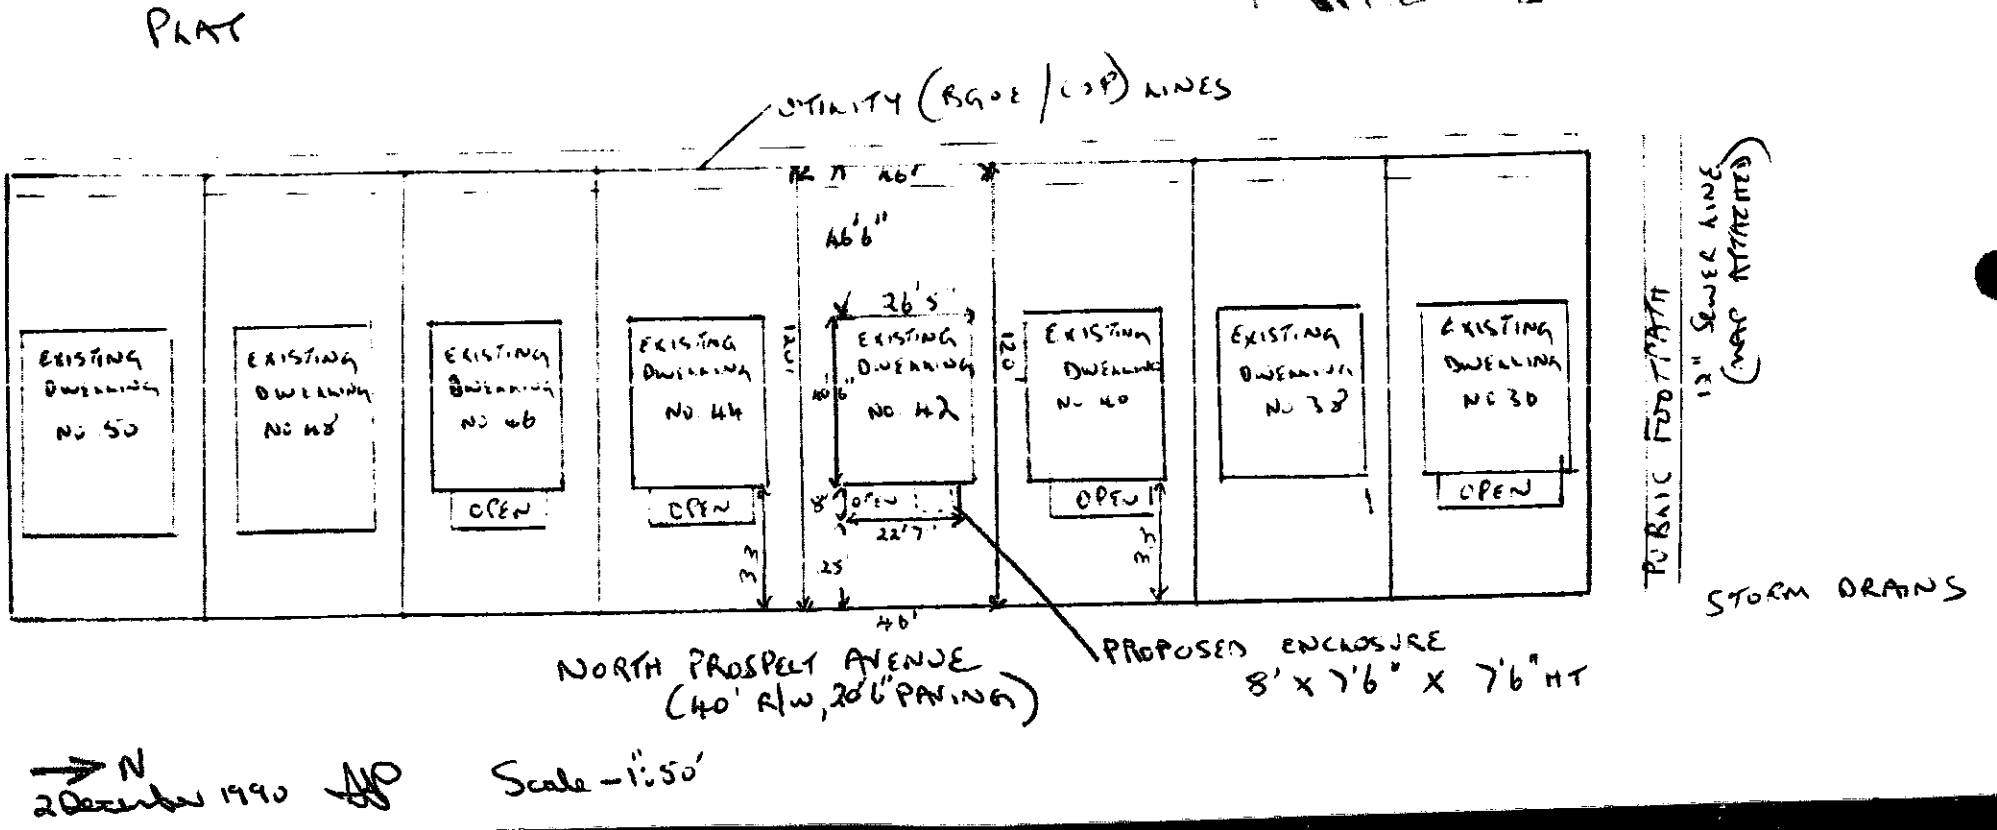 PLAT
UTILITY (BGOE / C&P) LINES
46'6"
26'5"
EXISTING
DWELLING
NO 50
EXISTING
DWELLING
NO 48
EXISTING
DWELLING
NO 46
EXISTING
DWELLING
NO. 44
120'
40'6"
EXISTING
DWELLING
NO 42
120'
EXISTING
DWELLING
NO 40
EXISTING
DWELLING
NO 38
EXISTING
DWELLING
NO 36
OPEN
OPEN
8'
OPEN
OPEN
OPEN
22'7"
33
25'
33
40'
PUBLIC FOOTPATH
12" SEWER LINE
(MAP ATTACHED)
STORM DRAINS
NORTH PROSPECT AVENUE
(40' R/W, 20'6" PAVING)
PROPOSED ENCLOSURE
8' X 7'6" X 7'6" HT
N
2 December 1990
Scale - 1":50'